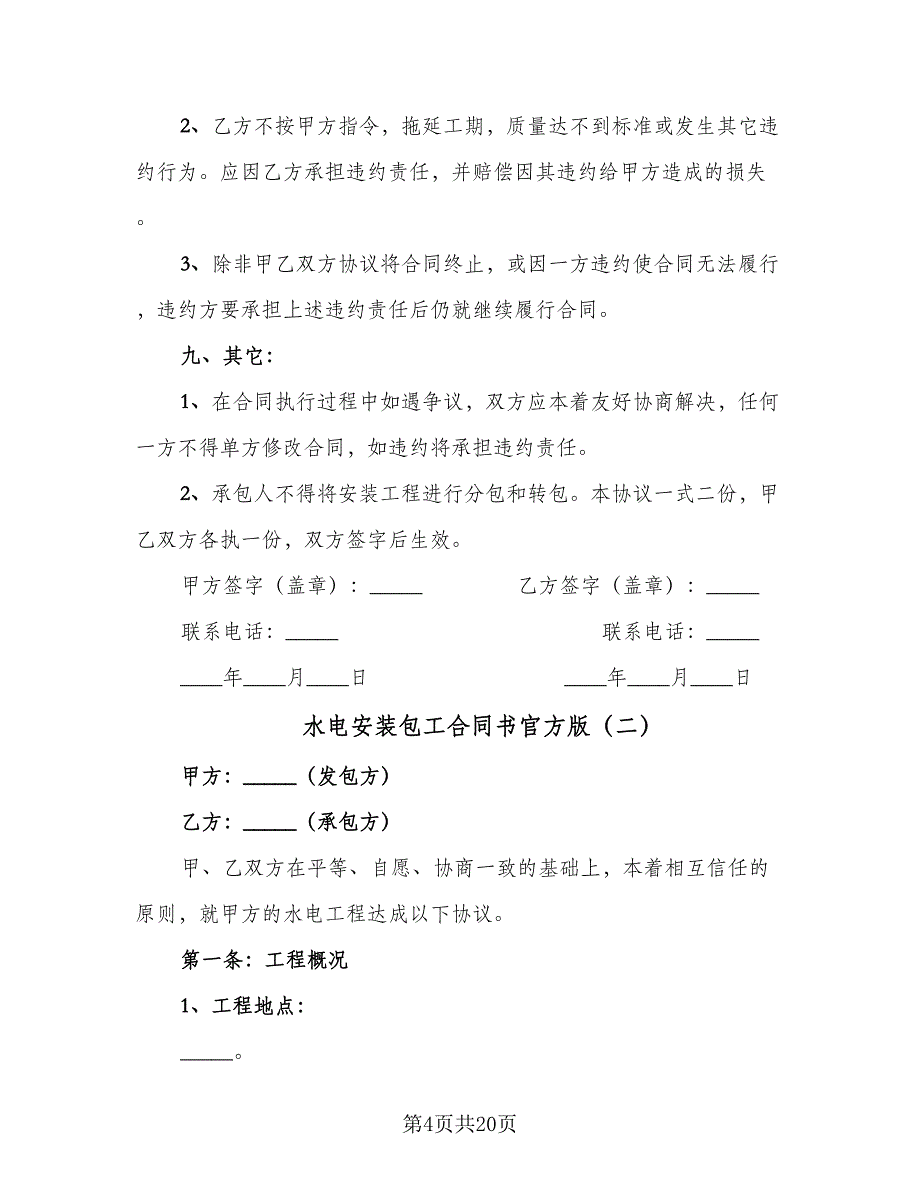 2、乙方不按甲方指令，拖延工期，质量达不到标准或发生其它违
约行为。应因乙方承担违约责任，并赔偿因其违约给甲方造成的损失
。
3、除非甲乙双方协议将合同终止，或因一方违约使合同无法履行
，违约方要承担上述违约责任后仍就继续履行合同。
九、其它：
1、在合同执行过程中如遇争议，双方应本着友好协商解决，任何
一方不得单方修改合同，如违约将承担违约责任。
2、承包人不得将安装工程进行分包和转包。本协议一式二份，甲
乙双方各执一份，双方签字后生效。
甲方签字（盖章）：_____ 乙方签字（盖章）：_____
联系电话：_____ 联系电话：_____
____年____月____日 ____年____月____日
水电安装包工合同书官方版（二）
甲方：_____（发包方）
乙方：_____（承包方）
甲、乙双方在平等、自愿、协商一致的基础上，本着相互信任的
原则，就甲方的水电工程达成以下协议。
第一条：工程概况
1、工程地点：
_____。
第4页共20页